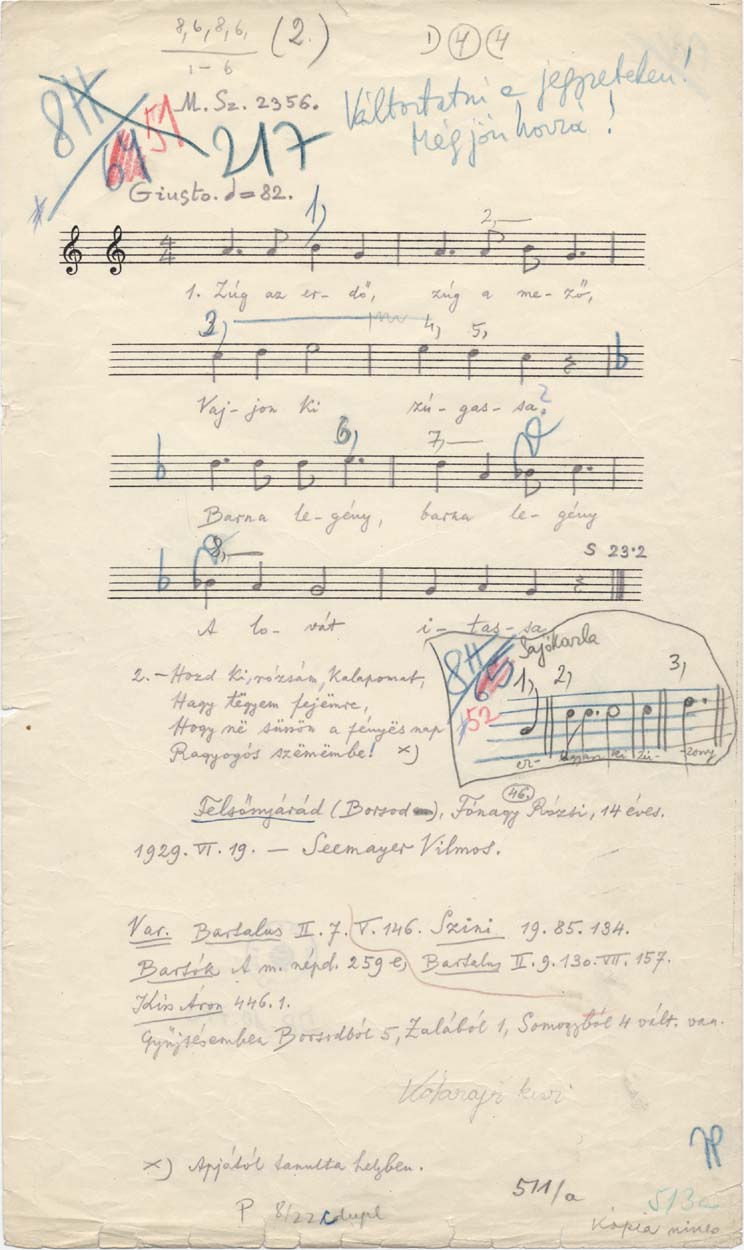 8, 6, 8, 6, (2.)
1-6
D 4 4
8H
M. Sz. 2356.
Váltortatni a jegyzeteken!
Még jön hozzá!
64 51 217
Giusto. d = 82.
1,
2,
4
4
1. Zúg az er- dő, zúg a me- ző,
3, 4, 5,
Vaj- jon ki zú- gas- sa?
6, 7,
Barna le- gény, barna le- gény
8,
S 23·2
A lo- vát i- tas- sa
2. - Hozd ki, rózsám, kalapomat,
Hagy tëgyem fejëmre,
Hogy në süssön a fényës nap
Ragyogós szëmëmbe! x)
8H Sajókazla
52 1, 2, 3,
er- ki zú-
46.
Felsőnyárád (Borsod), Fónagy Rózsi, 14 éves.
1929. VI. 19. - Seemayer Vilmos.
Var. Bartalus II. 7. V. 146. Szini 19. 85. 134.
Bartók A m. népd. 259 e, Bartalus II. 9. 130. VII. 157.
Kiss Áron 446. 1.
Gyűjtésemben Borsodból 5, Zalából 1, Somogyból 4 vált. van.
x) Apjától tanulta helyben.
511/a
513c
P 8/22 dupl
Kópia nincs